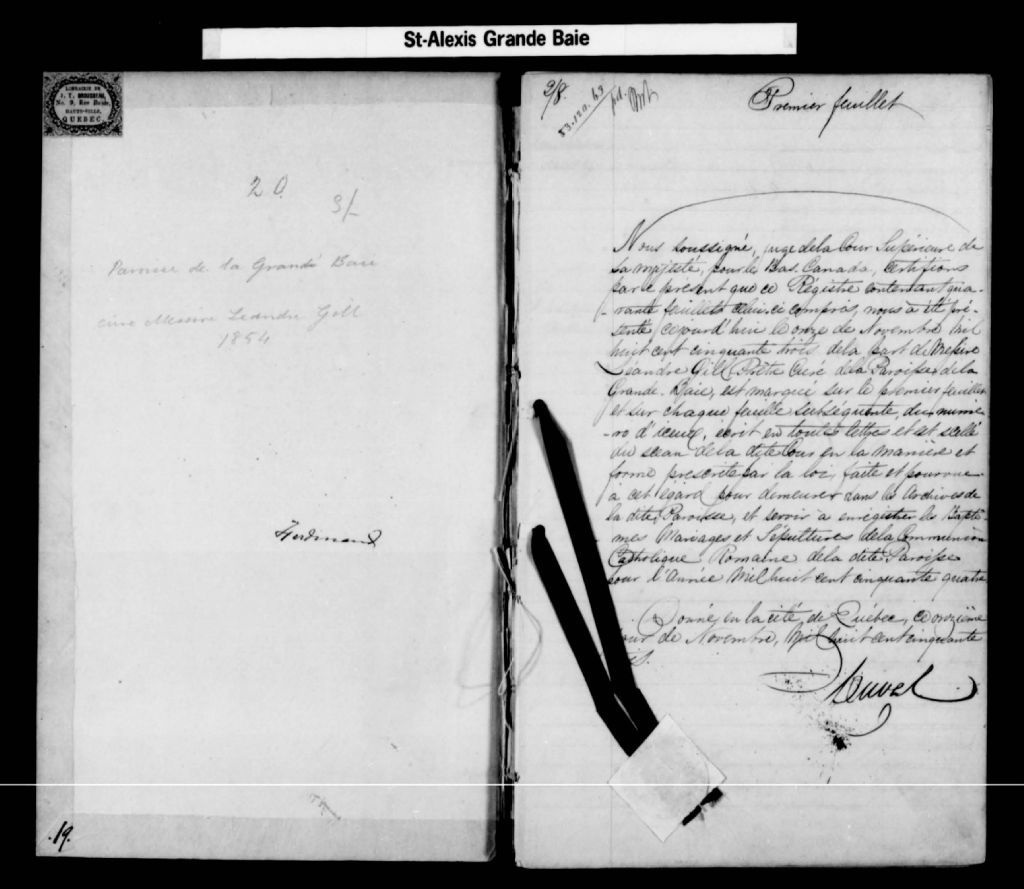 St-Alexis Grande Baie
LIBRAIRIE DE
J. T. BROUSSEAU,
No. 9, Rue Buade,
HAUTE-VILLE,
QUEBEC.
20
3/-
Paroisse de la Grande Baie
cure Messire Leandre Gill
1854
Ferdinand
.19.
Premier feuillet
Nous soussigné, juge de la Cour Supérieure de
Sa majesté, pour le Bas-Canada, certifions
par le présent que ce Régistre contenant qua-
-rante feuillets celui-ci compris, nous a été pré-
senté cejourd'hui le onze de Novembre Mil
huit cent cinquante trois de la part de Messire
Léandre Gill Prêtre Curé de la Paroisse de la
Grande-Baie, est marqué sur le premier feuillet
et sur chaque feuille subséquente du numé-
-ro d'iceux, écrit en toutes lettres et est scellé
du sceau de la dite Cour en la manière et
forme prescrite par la loi, faite et pourvue
à cet égard pour demeurer dans les Archives de
la dite Paroisse, et servir à enrégistrer les Baptê-
mes Mariages et Sépultures de la Communion
Catholique Romaine de la dite Paroisse
pour l'Année Mil huit cent cinquante quatre
Donné, en la cité de Québec, ce onzième
jour de Novembre, Mil huit cent cinquante
Duval